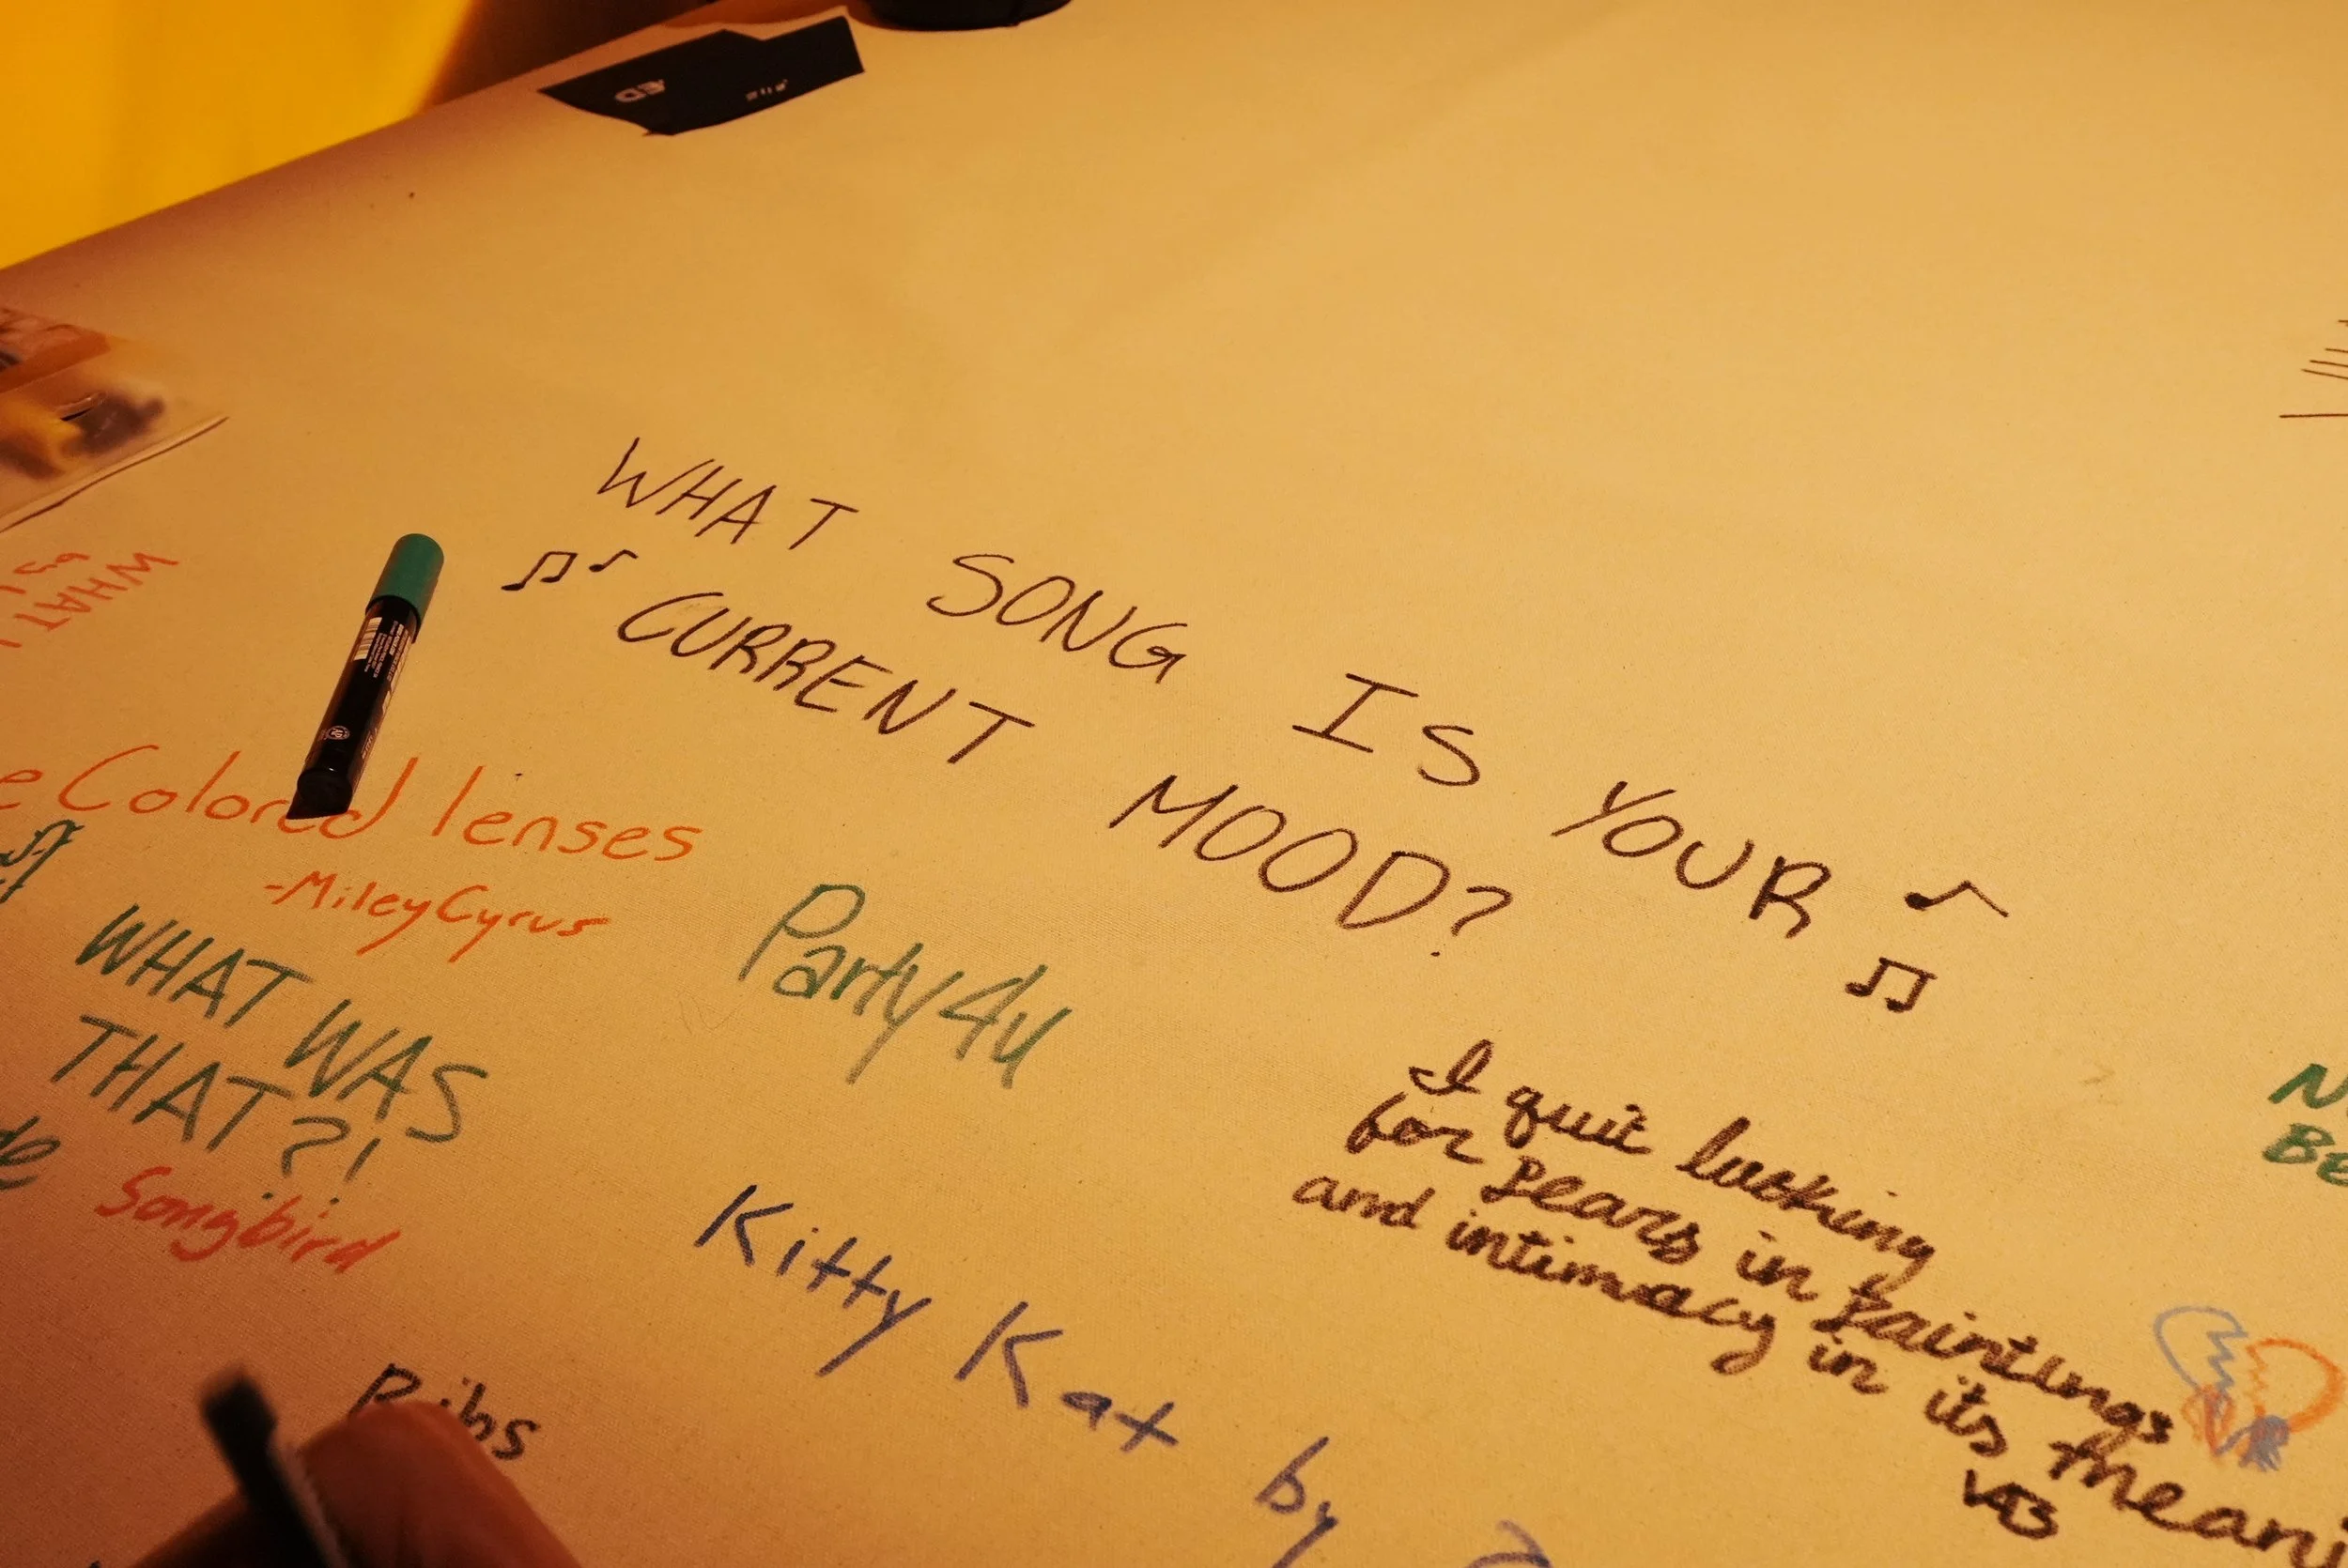 WHAT SONG IS YOUR
CURRENT MOOD?
WHAT
by
e Colored lenses
-Miley Cyrus
WHAT WAS
THAT?!
de
Songbird
Party4u
Kitty Kat by
Ribs
I quit looking
for pears in paintings
and intimacy in its meani
VAB
N
BE